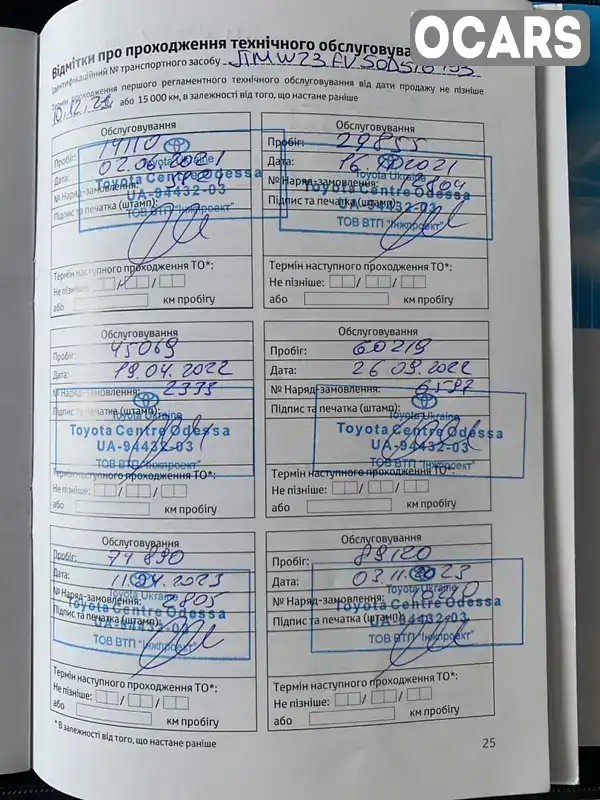 QCARS
Відмітки про проходження технічного обслуговува
Ідентифікаційний № транспортного засобу
Термін проходження першого регламентного технічного обслуговування від дати продажу не пізніше
або 15 000 км, в залежності від того, що настане раніше
Обслуговування
Пробіг: 14110
Дата: 02.06.2021
№ Наряд-замовлення:
Підпис та печатка (штамп):
Toyota Ukraine
Toyota Centre Odessa
UA-94432-03
ТОВ ВТП "Інжпроект"
Термін наступного проходження ТО*:
Не пізніше: / /
або км пробігу
Обслуговування
Пробіг: 29855
Дата: 2021
№ Наряд-замовлення:
Підпис та печатка (штамп):
Toyota Ukraine
Toyota Centre Odessa
UA-94432-03
ТОВ ВТП "Інжпроект"
Термін наступного проходження ТО*:
Не пізніше: / /
або км пробігу
Обслуговування
Пробіг: 45069
Дата: 19.04.2022
№ Наряд-замовлення: 2333
Підпис та печатка (штамп):
Toyota Ukraine
Toyota Centre Odessa
UA-94432-03
ТОВ ВТП "Інжпроект"
Термін наступного проходження ТО*:
Не пізніше: / /
або км пробігу
Обслуговування
Пробіг: 60219
Дата: 26.09.2022
№ Наряд-замовлення: 6597
Підпис та печатка (штамп):
Toyota Ukraine
Toyota Centre Odessa
UA-94432-03
ТОВ ВТП "Інжпроект"
Термін наступного проходження ТО*:
Не пізніше: / /
або км пробігу
Обслуговування
Пробіг: 74890
Дата: 11.04.2023
№ Наряд-замовлення: 2805
Підпис та печатка (штамп):
Toyota Ukraine
Toyota Centre Odessa
UA-94432-03
ТОВ ВТП "Інжпроект"
Термін наступного проходження ТО*:
Не пізніше: / /
або км пробігу
Обслуговування
Пробіг: 89120
Дата: 03.11.2023
№ Наряд-замовлення:
Підпис та печатка (штамп):
Toyota Ukraine
Toyota Centre Odessa
UA-94432-03
ТОВ ВТП "Інжпроект"
Термін наступного проходження ТО*:
Не пізніше: / /
або км пробігу
* В залежності від того, що настане раніше
25